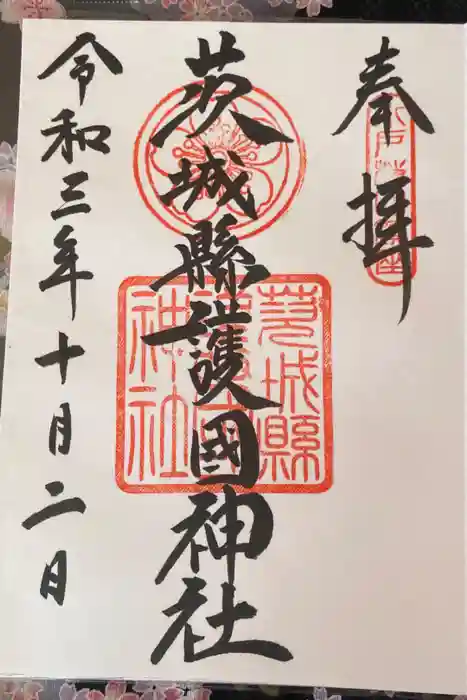 奉拝
茨城縣護國神社
茨城縣
護國
神社
令和三年十月二日